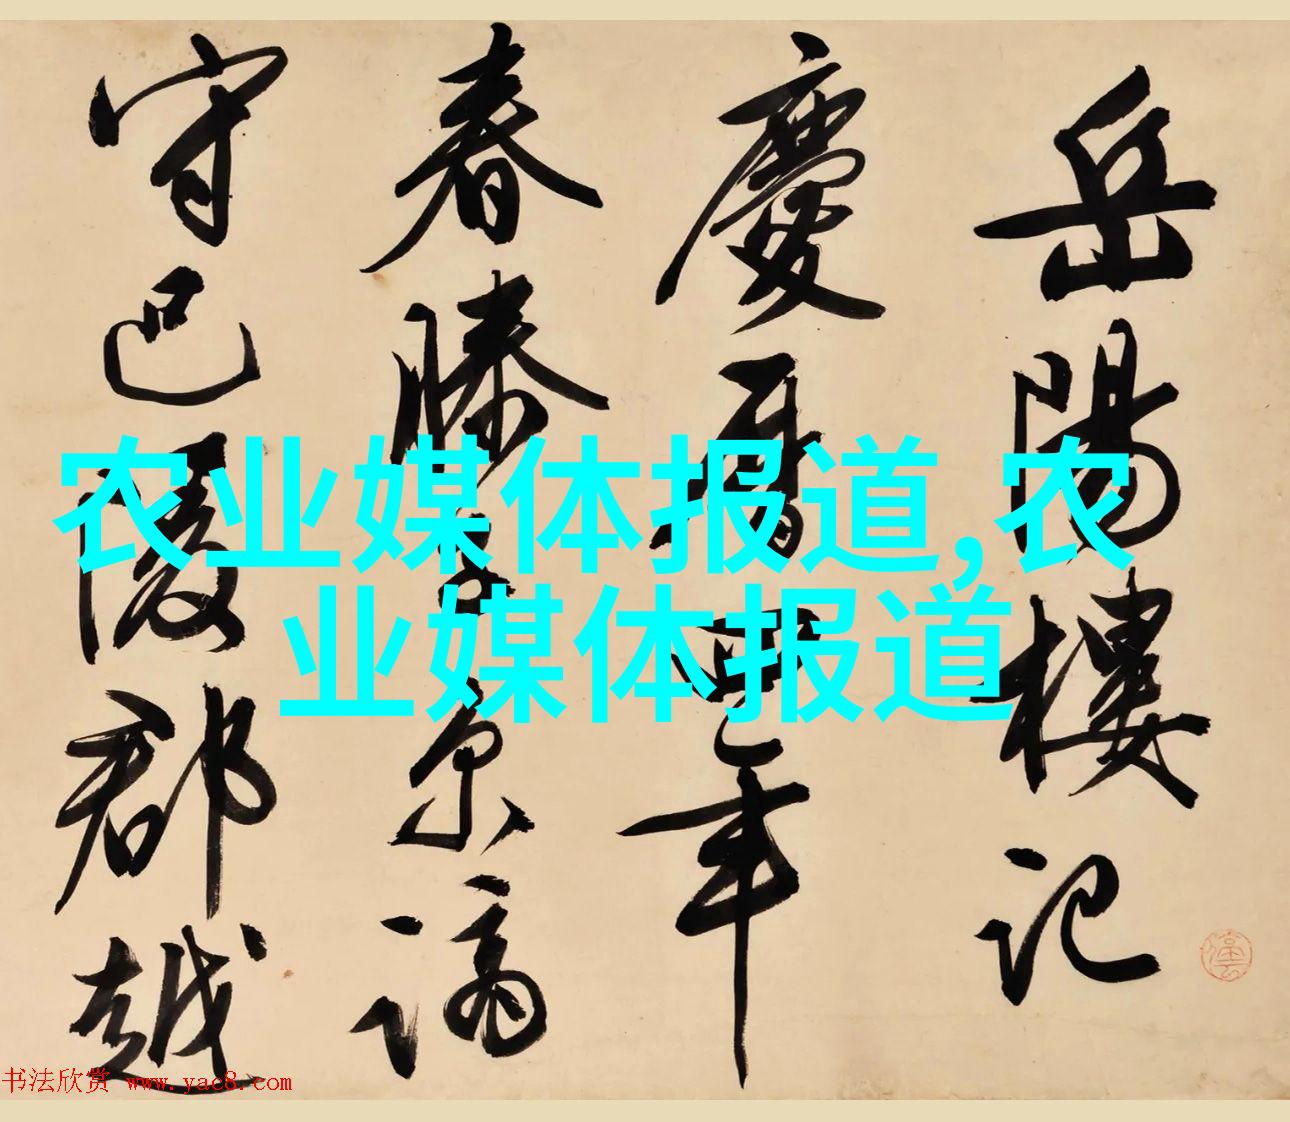 岳陽樓記
慶曆四年
春滕子京謫
守巴陵郡越
农业媒体报道,农
业媒体报道
书法欣赏 www.yac8.com